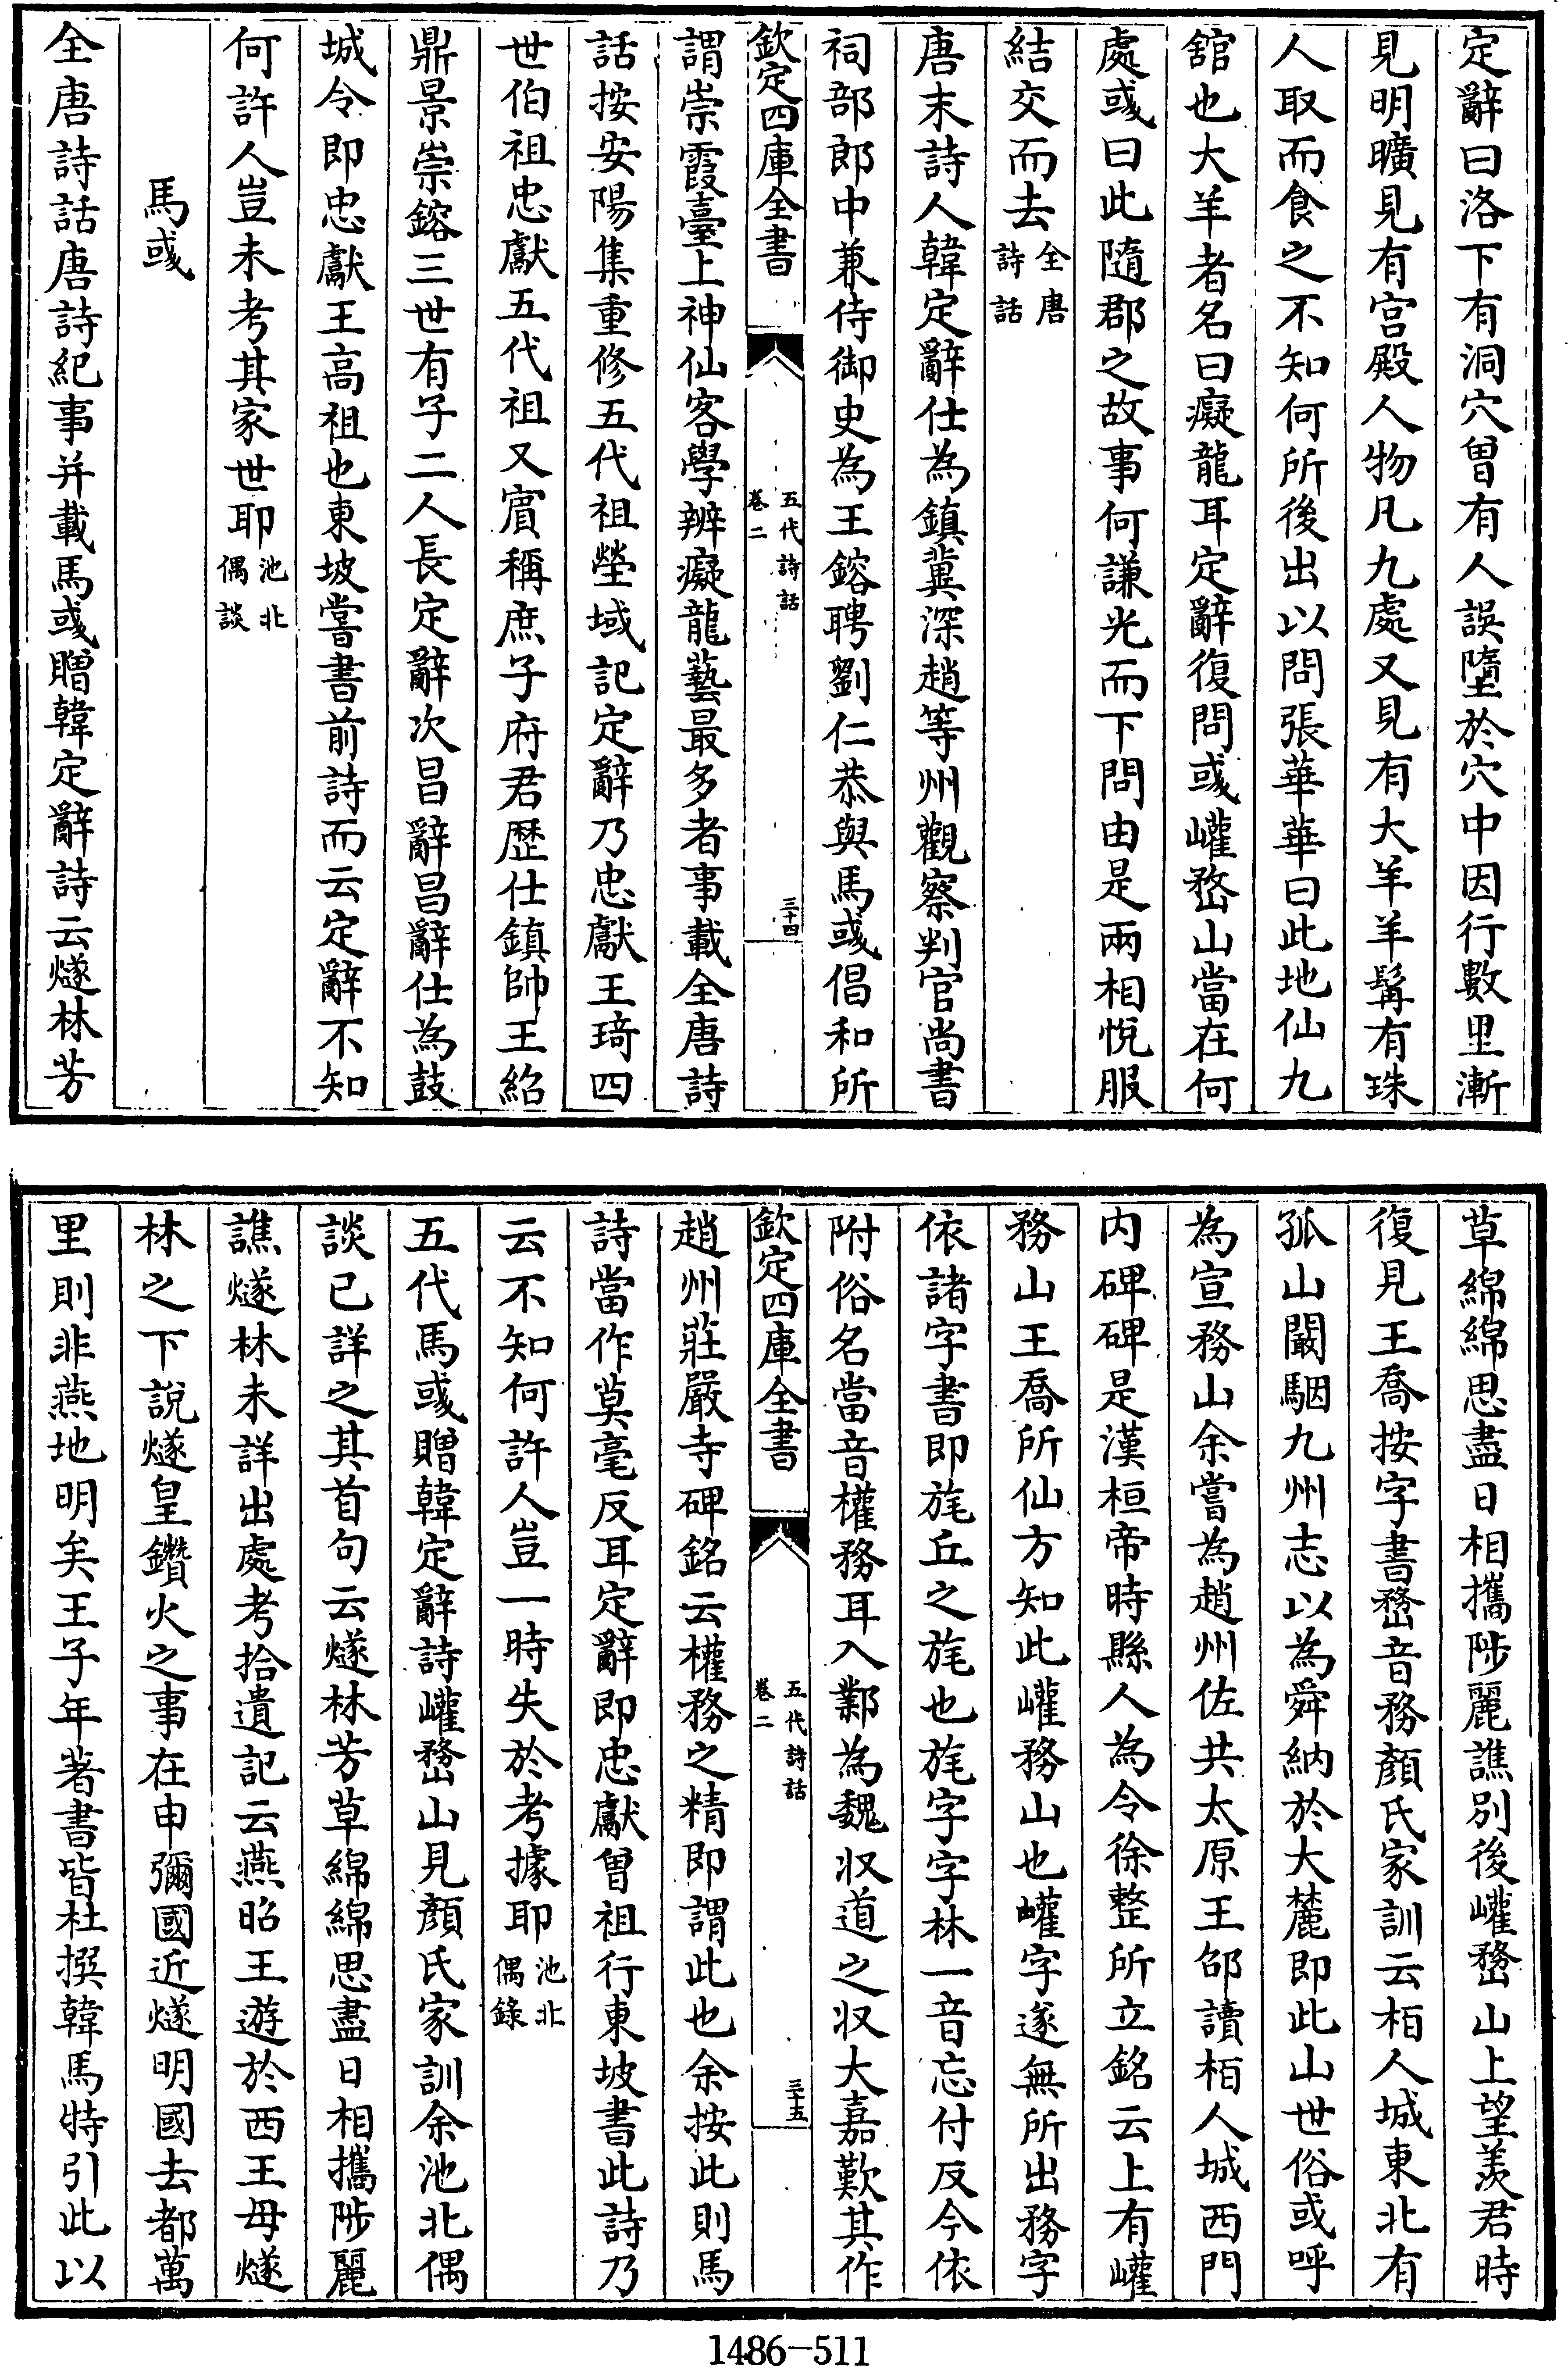 定辭曰洛下有洞穴曾有人誤墮於穴中因行數里漸
見明曠見有宫殿人物凡九處又見有大羊羊髯有珠
人取而食之不知何所後出以問張華華曰此地仙九
舘也大羊者名曰癡龍耳定辭復問彧巏嵍山當在何
處彧曰此隨郡之故事何謙光而下問由是兩相悅服
結交而去全唐詩話
唐末詩人韓定辭仕為鎮冀深趙等州觀察判官尚書
祠部郎中兼侍御史為王鎔聘劉仁恭與馬彧倡和所
欽定四庫全書 五代詩話 卷二 三十四
謂崇霞臺上神仙客學辨癡龍藝最多者事載全唐詩
話按安陽集重修五代祖塋域記定辭乃忠獻王琦四
世伯祖忠獻五代祖又賓稱庶子府君歷仕鎮帥王紹
鼎景崇鎔三世有子二人長定辭次昌辭昌辭仕為鼓
城令即忠獻王高祖也東坡嘗書前詩而云定辭不知
何許人豈未考其家世耶池北偶談
馬彧
全唐詩話唐詩紀事并載馬彧贈韓定辭詩云燧林芳
草綿綿思盡日相攜陟麗譙別後巏嵍山上望羨君時
復見王喬按字書嵍音務顏氏家訓云栢人城東北有
孤山闞駰九州志以為舜納於大麓即此山世俗或呼
為宣務山余嘗為趙州佐共太原王邵讀栢人城西門
内碑碑是漢桓帝時縣人為令徐整所立銘云上有巏
務山王喬所仙方知此巏務山也巏字遂無所出務字
依諸字書即旄丘之旄也旄字字林一音忘付反今依
附俗名當音權務耳入鄴為魏收道之收大嘉歎其作
欽定四庫全書 五代詩話 卷二 三十五
趙州莊嚴寺碑銘云權務之精即謂此也余按此則馬
詩當作莫毫反耳定辭即忠獻曾祖行東坡書此詩乃
云不知何許人豈一時失於考據耶池北偶錄
五代馬彧贈韓定辭詩巏嵍山見顏氏家訓余池北偶
談已詳之其首句云燧林芳草綿綿思盡日相攜陟麗
譙燧林未詳出處考拾遺記云燕昭王遊於西王母燧
林之下說燧皇鑽火之事在申彌國近燧明國去都萬
里則非燕地明矣王子年著書皆杜撰韓馬特引此以
1486-511